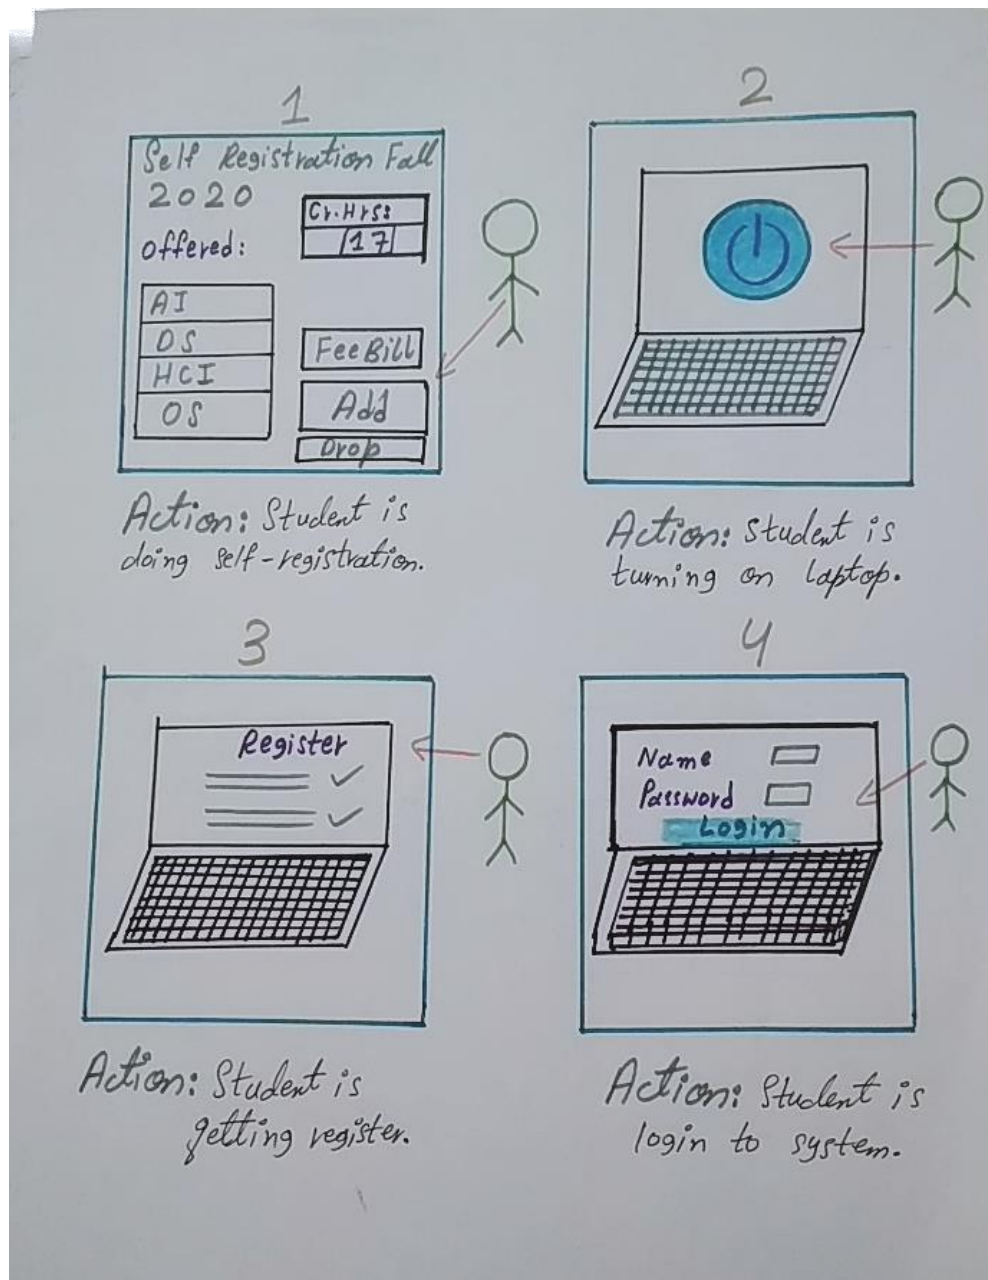 1
Self Registration Fall
2020
Cr.Hrs:
17
offered:
AI
DS
HCI
OS
Fee Bill
Add
Drop
Action: Student is
doing self-registration.
2
Action: Student is
turning on laptop.
3
Register
Action: Student is
getting register.
4
Name
Password
Login
Action: Student is
login to system.